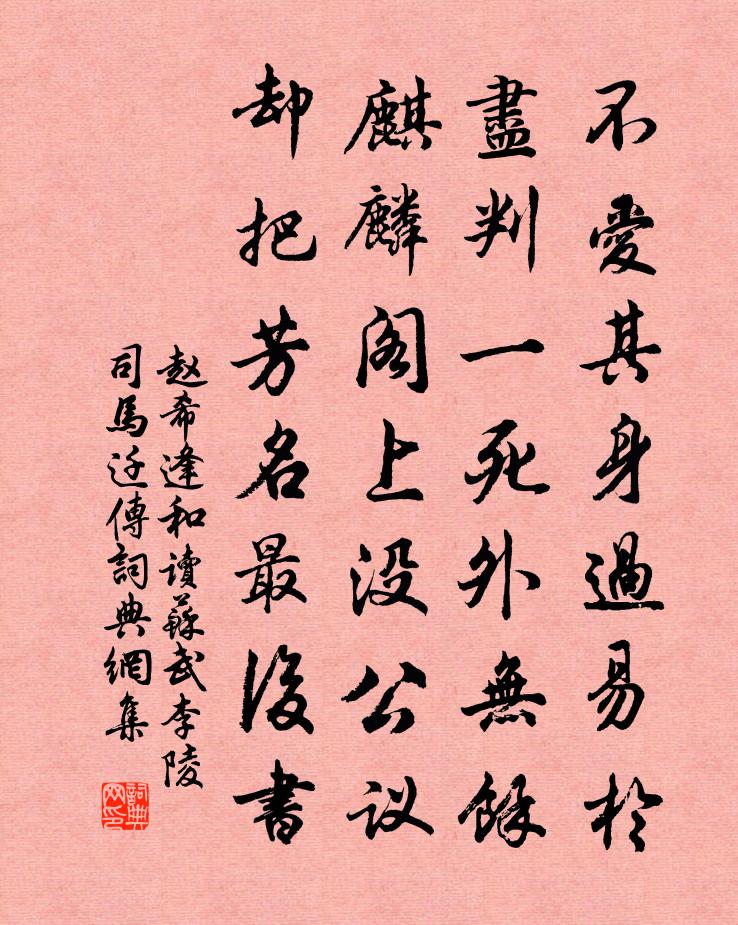 不愛其身過易於
盡判一死外無餘
麒麟阁上没公议
却把芳名最後書
赵希逢和讀蘇武李陵
司馬迁傳詞典網集
詞典网印